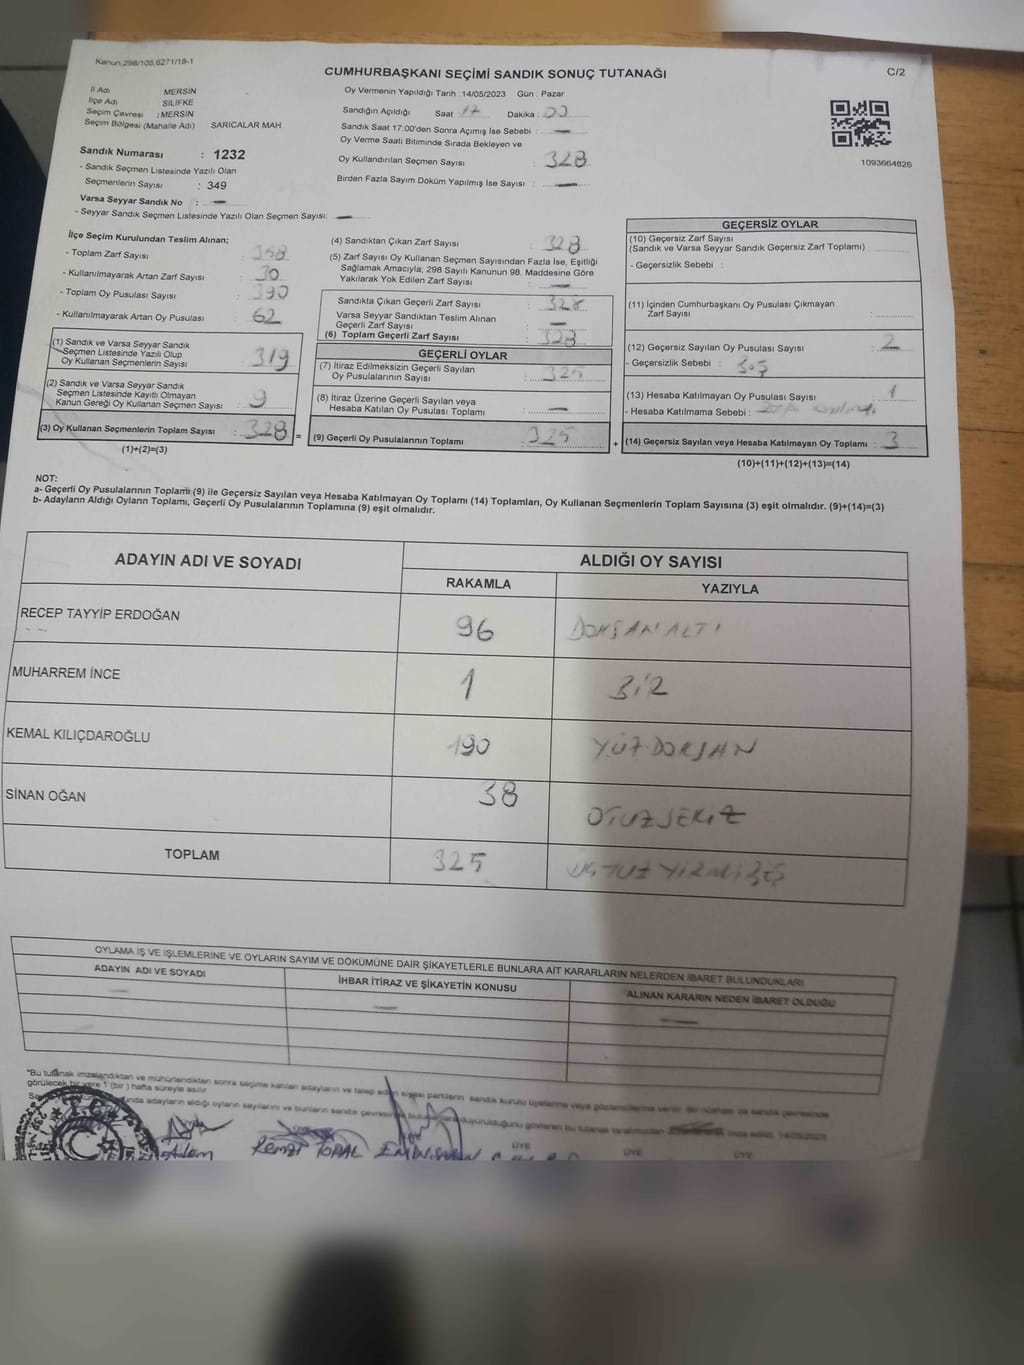 Kanun 298/105,6271/18-1
CUMHURBAŞKANI SEÇİMİ SANDIK SONUÇ TUTANAĞI
C/2
İl Adı : MERSİN
İlçe Adı : SİLİFKE
Seçim Çevresi : MERSİN
Seçim Bölgesi (Mahalle Adı) SARICALAR MAH.
Sandık Numarası : 1232
- Sandık Seçmen Listesinde Yazılı Olan
Seçmenlerin Sayısı : 349
Varsa Seyyar Sandık No : —
- Seyyar Sandık Seçmen Listesinde Yazılı Olan Seçmen Sayısı: —
Oy Vermenin Yapıldığı Tarih : 14/05/2023 Gün : Pazar
Sandığın Açıldığı Saat : 17 Dakika : 00
Sandık Saat 17:00'den Sonra Açımış İse Sebebi : —
Oy Verme Saati Bitiminde Sırada Bekleyen ve
Oy Kullandırılan Seçmen Sayısı : 328
Birden Fazla Sayım Döküm Yapılmış İse Sayısı : —
1093664826
İlçe Seçim Kurulundan Teslim Alınan;
- Toplam Zarf Sayısı : 358
- Kullanılmayarak Artan Zarf Sayısı : 30
- Toplam Oy Pusulası Sayısı : 390
- Kullanılmayarak Artan Oy Pusulası : 62
(1) Sandık ve Varsa Seyyar Sandık
Seçmen Listesinde Yazılı Olup
Oy Kullanan Seçmenlerin Sayısı : 319
(2) Sandık ve Varsa Seyyar Sandık
Seçmen Listesinde Kayıtlı Olmayan
Kanun Gereği Oy Kullanan Seçmen Sayısı : 9
(3) Oy Kullanan Seçmenlerin Toplam Sayısı : 328
(1)+(2)=(3)
(4) Sandıktan Çıkan Zarf Sayısı : 328
(5) Zarf Sayısı Oy Kullanan Seçmen Sayısından Fazla İse, Eşitliği
Sağlamak Amacıyla; 298 Sayılı Kanunun 98. Maddesine Göre
Yakılarak Yok Edilen Zarf Sayısı : —
Sandıkta Çıkan Geçerli Zarf Sayısı : 328
Varsa Seyyar Sandıktan Teslim Alınan
Geçerli Zarf Sayısı : —
(6) Toplam Geçerli Zarf Sayısı : 328
GEÇERLİ OYLAR
(7) İtiraz Edilmeksizin Geçerli Sayılan
Oy Pusulalarının Sayısı : 325
(8) İtiraz Üzerine Geçerli Sayılan veya
Hesaba Katılan Oy Pusulası Toplamı : —
= (9) Geçerli Oy Pusulalarının Toplamı : 325
GEÇERSİZ OYLAR
(10) Geçersiz Zarf Sayısı
(Sandık ve Varsa Seyyar Sandık Geçersiz Zarf Toplamı) :
- Geçersizlik Sebebi :
(11) İçinden Cumhurbaşkanı Oy Pusulası Çıkmayan
Zarf Sayısı :
(12) Geçersiz Sayılan Oy Pusulası Sayısı : 2
- Geçersizlik Sebebi :
(13) Hesaba Katılmayan Oy Pusulası Sayısı : 1
- Hesaba Katılmama Sebebi :
+ (14) Geçersiz Sayılan veya Hesaba Katılmayan Oy Toplamı : 3
(10)+(11)+(12)+(13)=(14)
NOT:
a- Geçerli Oy Pusulalarının Toplamı (9) ile Geçersiz Sayılan veya Hesaba Katılmayan Oy Toplamı (14) Toplamları, Oy Kullanan Seçmenlerin Toplam Sayısına (3) eşit olmalıdır. (9)+(14)=(3)
b- Adayların Aldığı Oyların Toplamı, Geçerli Oy Pusulalarının Toplamına (9) eşit olmalıdır.
ADAYIN ADI VE SOYADI ALDIĞI OY SAYISI
RAKAMLA YAZIYLA
RECEP TAYYİP ERDOĞAN 96 DOKSANALTI
MUHARREM İNCE 1 BİR
KEMAL KILIÇDAROĞLU 190 YÜZ DOKSAN
SİNAN OĞAN 38 OTUZSEKİZ
TOPLAM 325 ÜÇYUZ YİRMİBEŞ
OYLAMA İŞ VE İŞLEMLERİNE VE OYLARIN SAYIM VE DÖKÜMÜNE DAİR ŞİKAYETLERLE BUNLARA AİT KARARLARIN NELERDEN İBARET BULUNDUKLARI
ADAYIN ADI VE SOYADI İHBAR İTİRAZ VE ŞİKAYETİN KONUSU ALINAN KARARIN NEDEN İBARET OLDUĞU
— — —
"Bu tutanak imzalandıktan ve mühürlendikten sonra seçime katılan adayların ve talep eden siyasi partilerin sandık kurulu üyelerine veya gözlemcilerine verilir. Bir nüshası da sandık çevresinde
görülecek bir yere 1 (bir) hafta süreyle asılır.
adayların aldığı oyların sayılarını ve bunların sandık çevresinde duyurulduğunu gösteren bu tutanak tarafımızdan 14/05/2023
Adem Remzi TOPAL
ÜYE ÜYE ÜYE